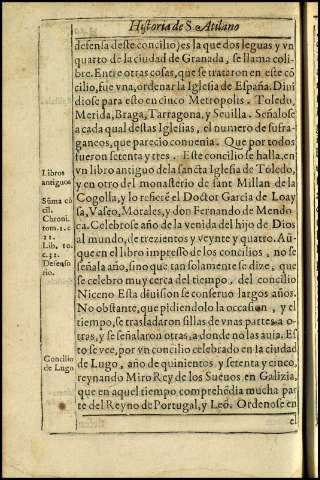 Historia de S. Atilano
defensa deste concilio) es la que dos leguas y vn
quarto de la ciudad de Granada, se llama coli-
bre. Entre otras cosas, que se trataron en este cõ
cilio, fue vna, ordenar la Iglesia de España. Diui
diose para esto en cinco Metropolis. Toledo,
Merida, Braga, Tarragona, y Seuilla. Señalose
a cada qual destas Iglesias, el numero de sufra-
ganeos, que parecio conuenia. Que por todos
fueron setenta y tres. Este concilio se halla, en
vn libro antiguo de la sancta Iglesia de Toledo,
y en otro del monasterio de sant Millan de la
Cogolla, y lo refiere el Doctor Garcia de Loay
sa, Vaseo, Morales, y don Fernando de Mendo-
ça. Celebrose año de la venida del hijo de Dios
al mundo, de trezientos y veynte y quatro. Aũ-
que en el libro impresso de los concilios, no se
señala año, sino que tan solamente se dize, que
se celebro muy cerca del tiempo, del concilio
Niceno Esta diuision se conseruo largos años.
No obstante, que pidiendolo la occasion, y el
tiempo, se trasladaron sillas de vnas partes a o-
tras, y se señalaron otras, a donde no las auia. Es
to se vee, por vn concilio celebrado en la ciudad
de Lugo, año de quinientos y setenta y cinco,
reynando Miro Rey de los Sueuos en Galizia,
que en aquel tiempo comprehẽdia mucha par
te del Reyno de Portugal, y Leõ. Ordenose en
el
Libros
antiguos
Sũma cõ
cil.
Chroni.
tom. 1. c
21.
Lib. 10.
c. 32.
Defenso
rio.
Concilio
de Lugo